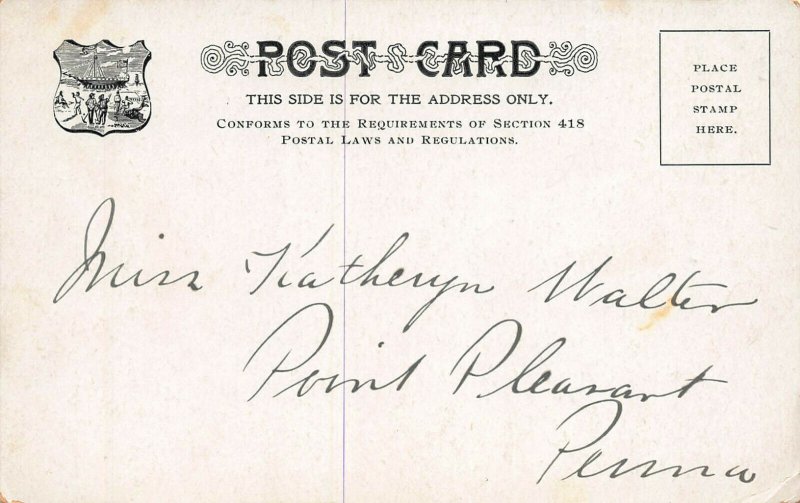 POST CARD
THIS SIDE IS FOR THE ADDRESS ONLY.
CONFORMS TO THE REQUIREMENTS OF SECTION 418
POSTAL LAWS AND REGULATIONS.
PLACE
POSTAL
STAMP
HERE.
Miss Katheryn Walter
Point Pleasant
Penna